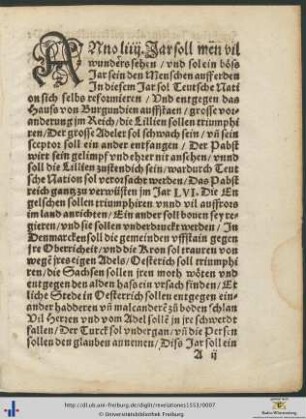 ANno liiij. Jar soll men vil
wunders sehen / vnd sol ein böss
Jar sein den Menschen auff erden
In diesem Jar sol Teutsche Nati
on sich selbs reformieren / Vnd entgegen das
Hauss von Burgundien auffstaen / grosse vor
anderung im Reich / die Lilien sollen triumphi
ren / Der grosse Adeler sol schwach sein / vñ sein
sceptor soll ein ander entfangen / Der Pabst
wirt sein gelimpf vnd ehrer nit ansehen / vnnd
soll die Lilien zustendich sein / wardurch Teut
sche Nation sol verorsacht werden / Das Pabst
reich gantz zu verwüsten im Jar LVI. Die En
gelschen sollen triumphiren vnnd vil auffrors
im land anrichten / Ein ander soll bouen sey re
gieren / vnd sie sollen vnderdruckt werden / In
Denmarcken soll die gemeinden vffstain gegen
jre Oberricheit / vnd die Kron sol trauren von we
gẽ jres eigen Adels / Oesterich soll triumphi
ren / die Sachsen sollen jren moth wöten vnd
entgegen den alden hass ein vrsach finden / Et
liche Stede in Oesterich sollen entgegen ein
ander hadderen vñ malcanderẽ zů boden schlan
Vil Herren vnd vom Adel sollẽ in jre schwerdt
fallen / Der Turck sol vndergan / vñ die Persen
sollen den glauben annemen / Diso Jar soll ein
A ij
http://dl.ub.uni-freiburg.de/diglit/revelationes1553/0007
© Universitätsbibliothek Freiburg